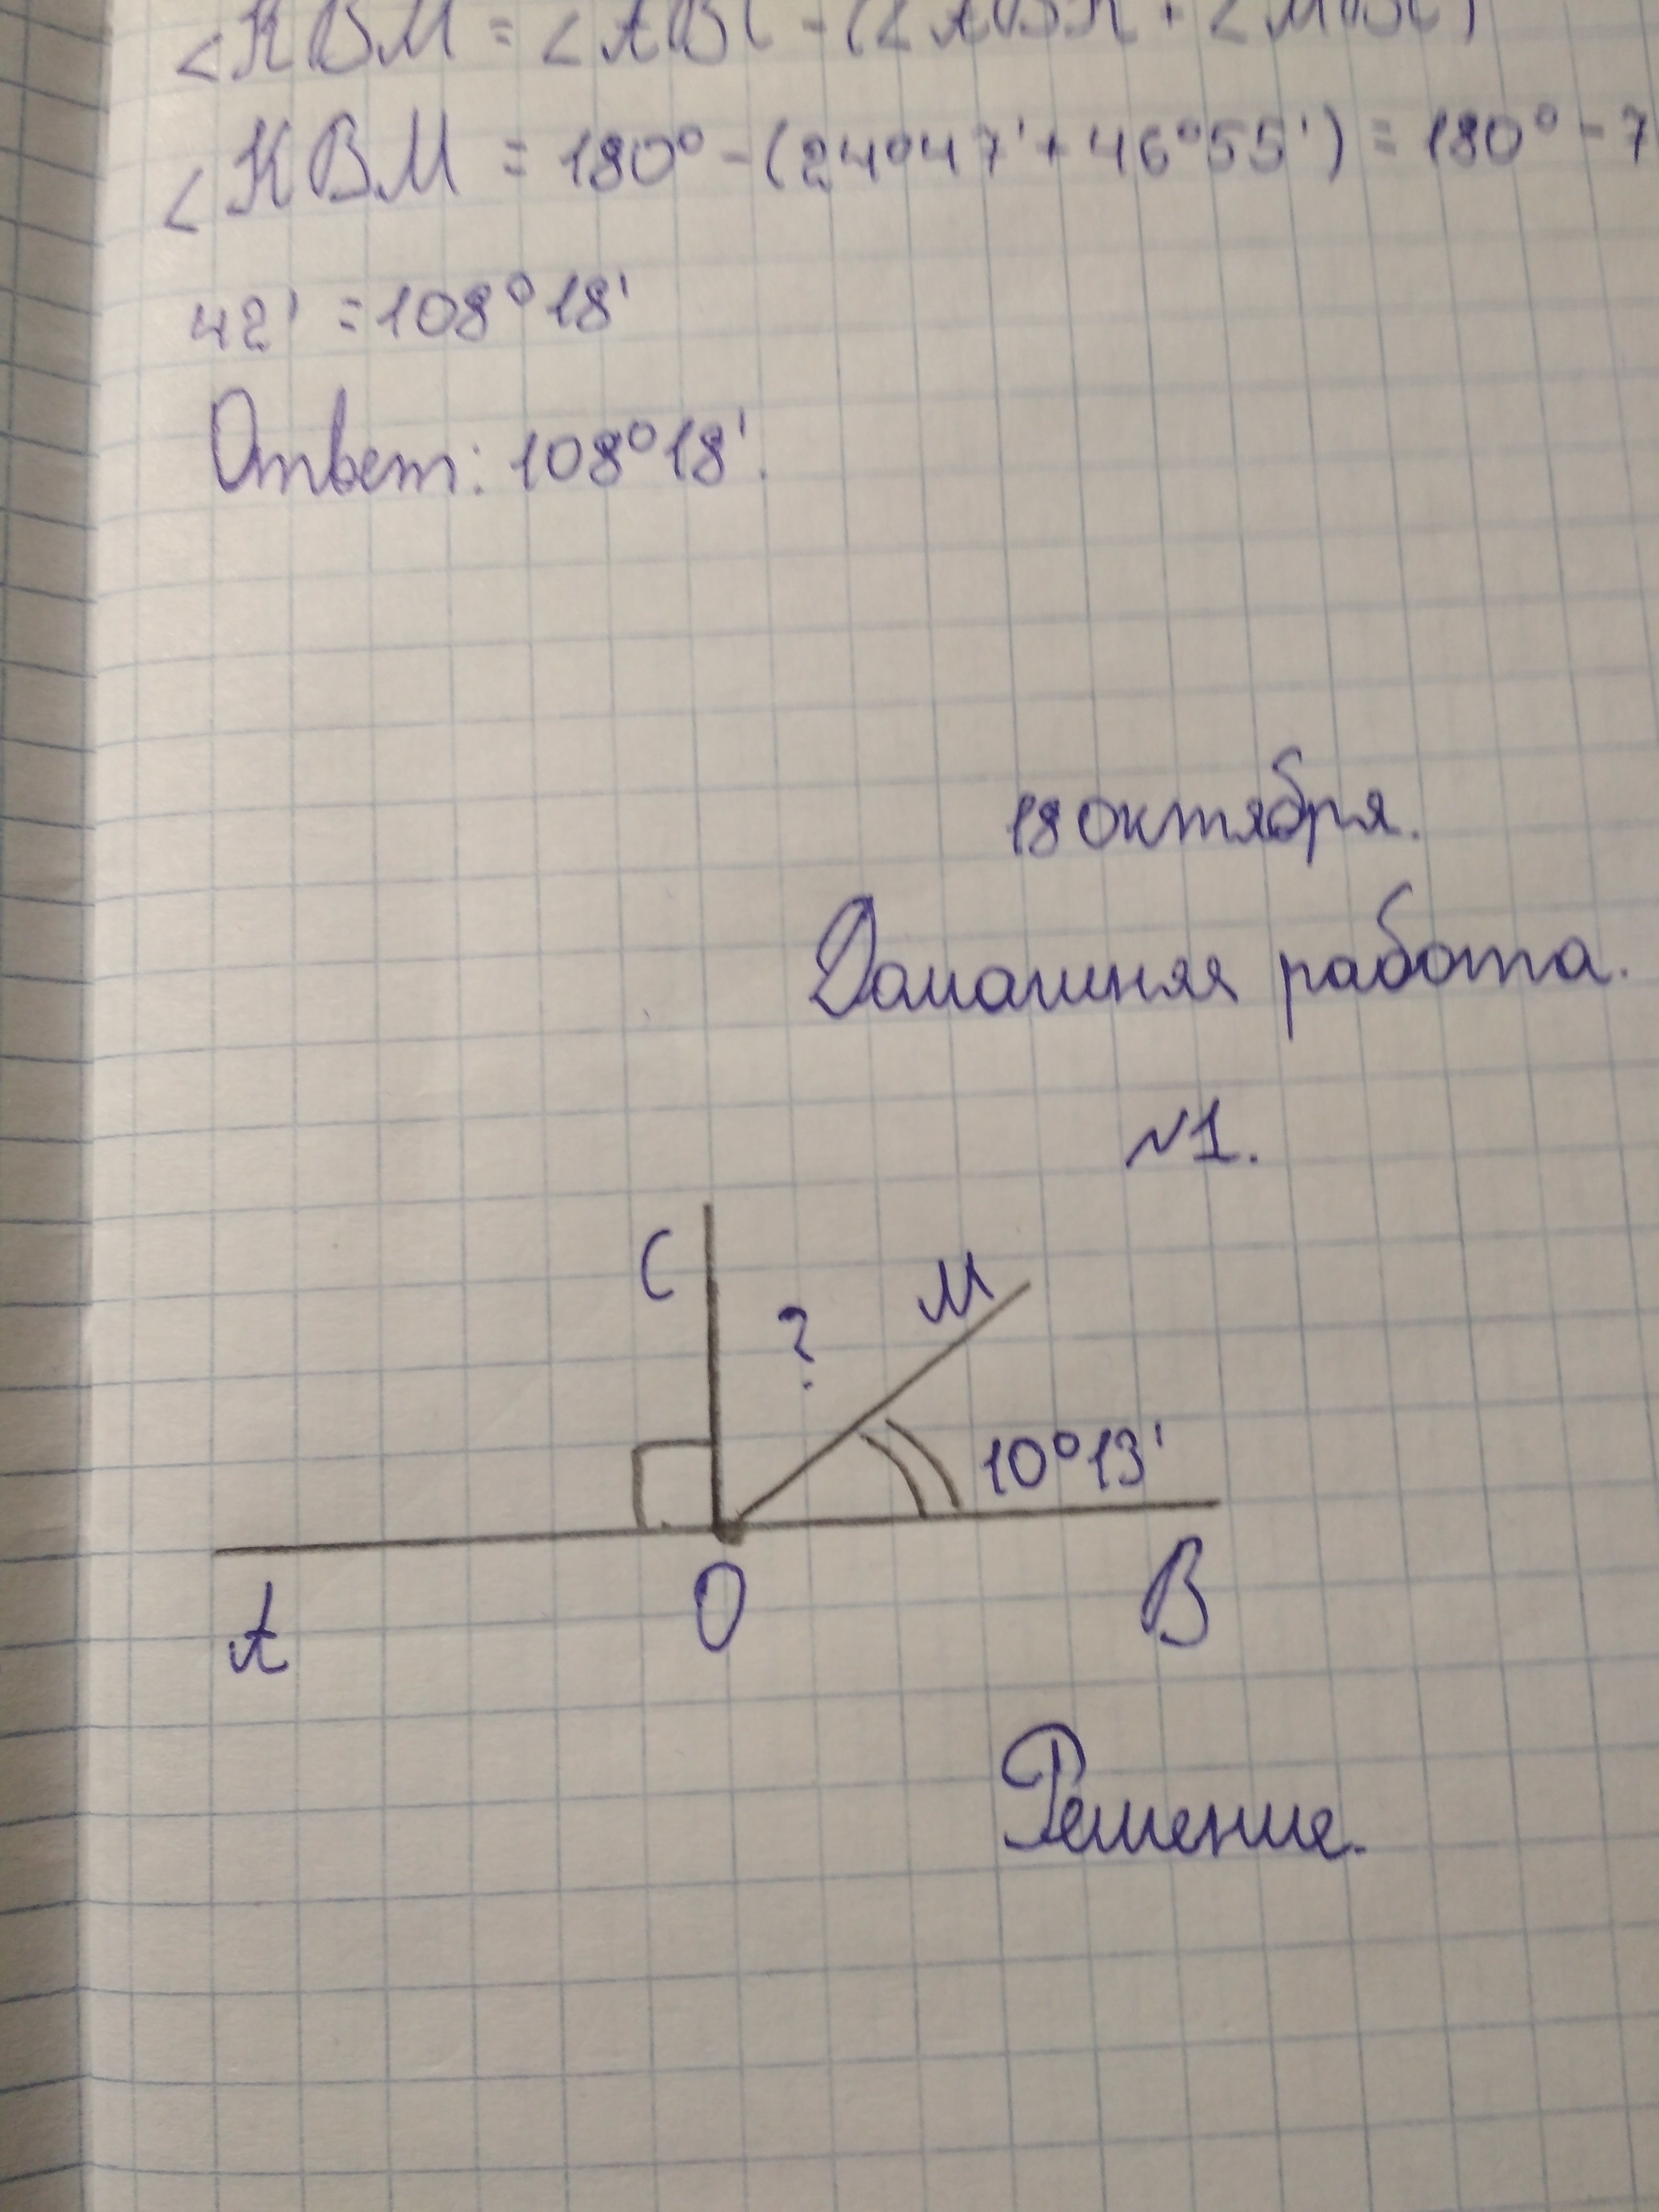 ∠KBM = ∠ABC - (∠ABK + ∠MBC)
∠KBM = 180° - (24°47' + 46°55') = 180° - 7
42' = 108°18'
Ответ: 108°18'.
18 октября.
Домашняя работа.
№1.
C
M
?
10°13'
A
O
B
Решение.